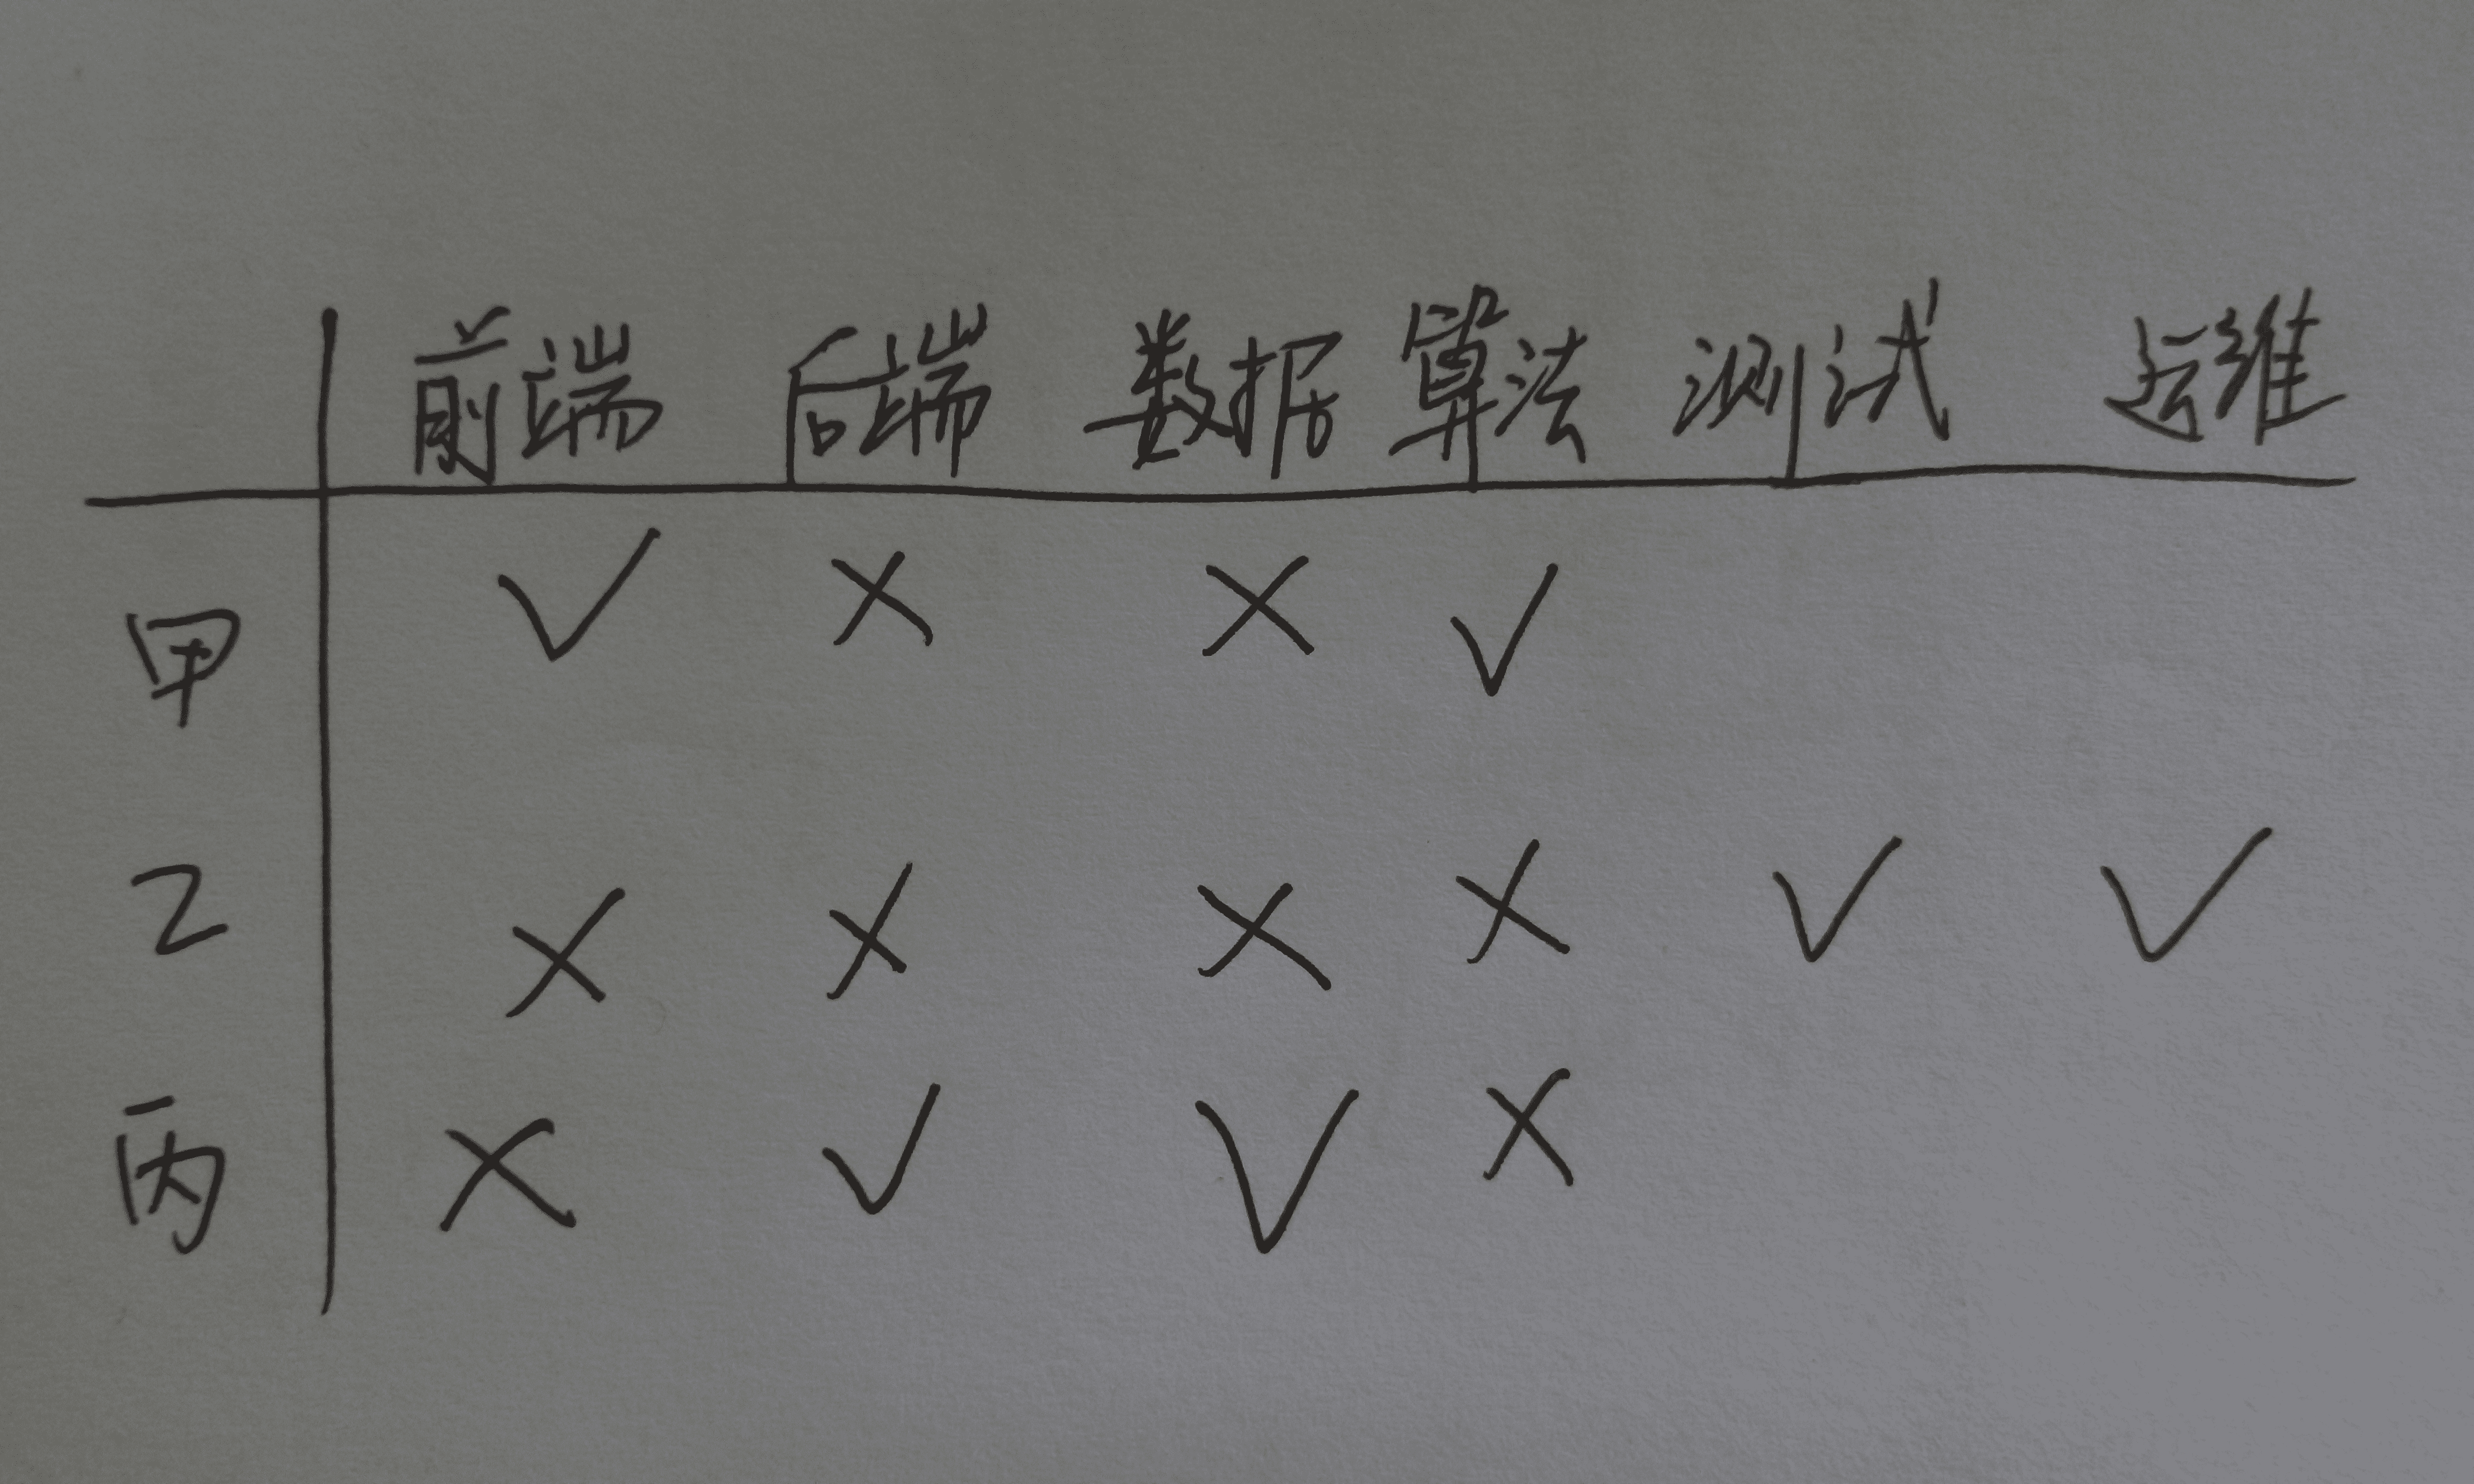 前端 后端 数据 算法 测试 运维
甲 ✓ × × ✓
乙 × × × × ✓ ✓
丙 × ✓ ✓ ×